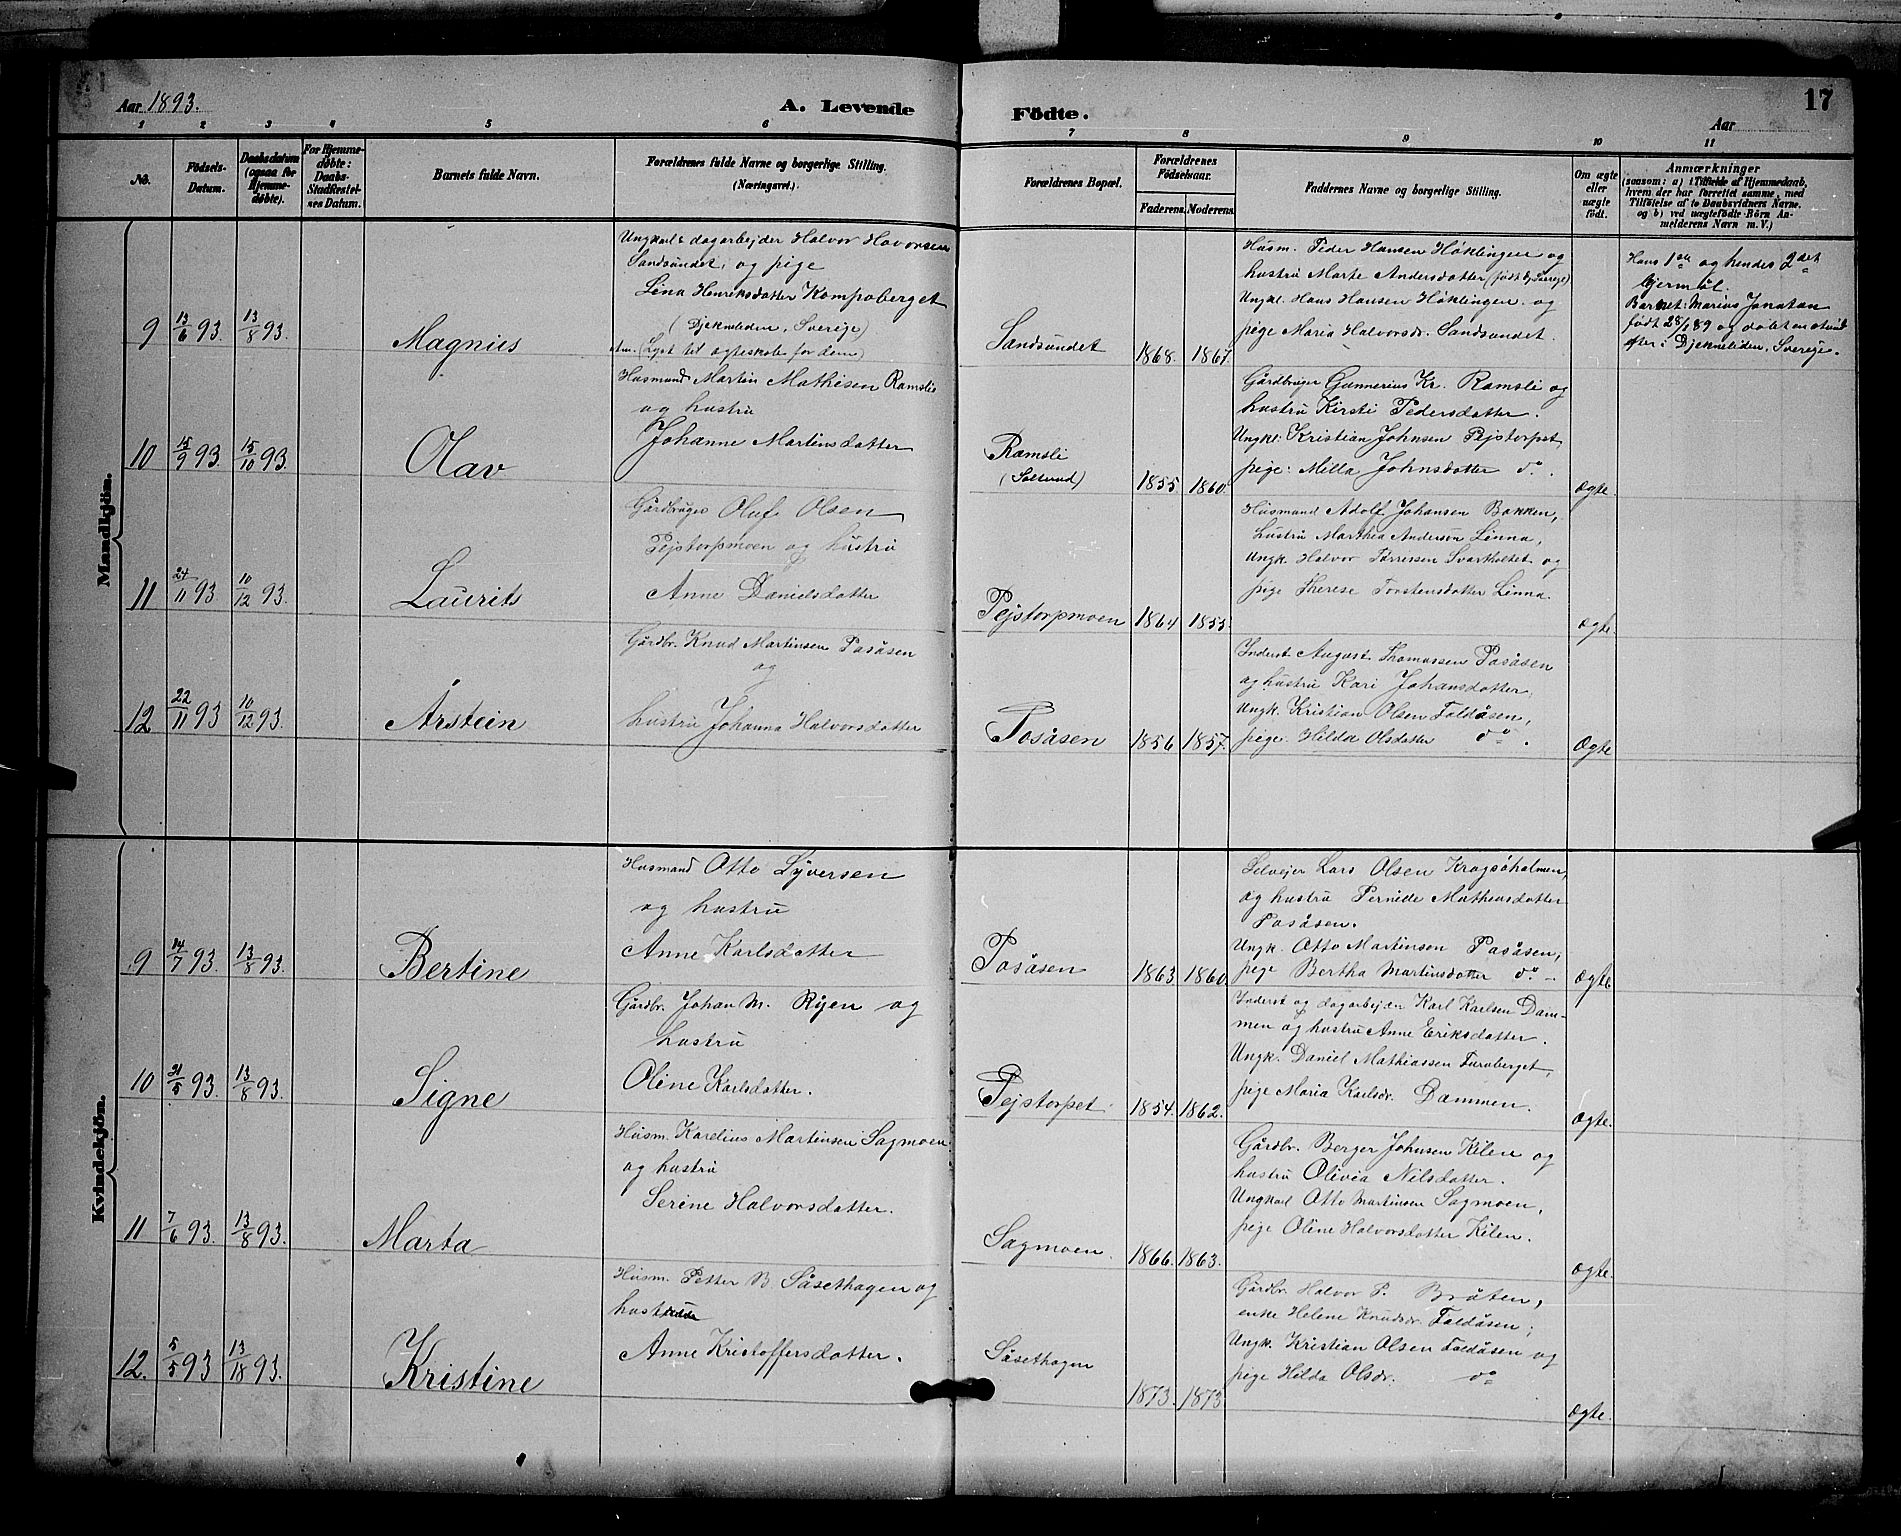 Aar 1893.
A. Levende
Födte.
Aar
17
1 2 3 4 5 6 7 8 9 10 11
No.
Fødsels-
Datum.
Daabsdatum
(ogsaa for
Hjemme-
døbte).
For Hjemme-
døbte:
Daabs-
Stadfæstel-
ses Datum.
Barnets fulde Navn.
Forældrenes fulde Navne og borgerlige Stilling.
(Næringsvei.)
Forældrenes Bopæl.
Forældrenes
Fødselsaar.
Faderens. Moderens.
Faddernes Navne og borgerlige Stilling.
Om ægte
eller
uægte
født.
Anmærkninger
(saasom: a) i Tilfælde af Hjemmedaab,
hvem der har forrettet samme, med
Tilføielse af to Daabsvidners Navne,
og b) ved uægtefødte Börn An-
melderens Navn m. V.)
Mandkjön.
9
13/6 93
13/8 93.
Magnus
Ungkarl & dagarbejder Halvor Havorsen
Sandsundet, og pige
Lina Henriksdatter Kampaberget
(Djekneliden, Sverige)
Am. (Lyst til ægteskab for dem)
Sandsundet
1868. 1867.
Husm. Peder Hansen Høklingen og
hustru Marte Andersdatter (født i Sverige)
Ungkl. Hans Hansen Høklingen og
pige Maria Halvorsdr. Sandsundet.
Hans 1ste og hendes 2det
lejermål.
Barnet: Marius Jonatan
født 28/1 89 og døbt
efter i Djekneliden, Sverige.
10
15/9 93.
15/10 93.
Olav
Husmand Martin Mathisen Ramsli
og hustru
Johanne Martinsdatter
Ramsli
1855. 1860.
Gårdbruger Gunnerius Kr. Ramsli og
hustru Kirsti Pedersdatter.
Ungkl: Kristian Johnsen Pejstorpet
pige: Milla Johnsdatter do.
Ægte.
11
24/11 93
10/12 93.
Laurits
Gårdbruger Oluf Olsen
Pejstorpmoen og hustru
Anne Danielsdatter
Pejstorpmoen
1864 1855.
Husmand Adolf Johansen Bakken,
hustru Marthea Andersen Linna,
Ungk. Halvor Tørrissen Svartholtet og
pige Therese Torstensdatter Linna.
Ægte.
12
22/11 93
10/12 93.
Årstein
Gårdbr. Knud Martinsen Posåsen
og
hustru Johanna Halvorsdatter
Posåsen
1856 1857.
Inderst August Thomassen Posåsen
og hustru Kari Johansdatter.
Ungk. Kristian Olsen Faldåsen,
pige Hilda Olsdatter do.
Ægte
Kvindekjön.
9
14/7 93.
13/8 93.
Bertine
Husmand Otto Syversen
og hustru
Anne Karlsdatter
Posåsen
1863 1860.
Selvejer Lars Olsen Kragsåholmen,
og hustru Pernide Matheusdatter
Posåsen.
Ungk. Otto Martinsen Posåsen,
pige Bertha Martinsdatter do -
Ægte
10
31/5 93.
13/8 93.
Signe
Gårdbr. Johan M. Ryen og
hustru
Oline Karlsdatter.
Pejstorpet
1854. 1862.
Inderst og dagarbejder Karl Karlsen Dam-
men og hustru Anne Eriksdatter.
Ungk. Daniel Mathiassen Furuberget,
pige Maria Karlsdr. Dammen.
Ægte.
11
7/6 93.
13/8 93.
Marta
Husm. Karelius Martinsen Sagmoen
og hustru
Serine Halvorsdatter.
Sagmoen.
1866. 1863.
Gårdbr. Berger Johnsen Kilen og
hustru Olivia Nilsdatter.
Ungkarl Otto Martinsen Sagmoen,
pige Oline Halvorsdatter Kilen.
Ægte.
12.
5/5 93
13/18 93.
Kristine
Husm. Petter B. Såsethagen og
hustru
Anne Kristoffersdatter.
Såsethagen
1873. 1873
Gårdbr. Halvor P. Bråten,
enke Helene Knudsdr. Faldåsen;
Ungk. Kristian Olsen Faldåsen og
pige Hilda Olsdr. do
Ægte.